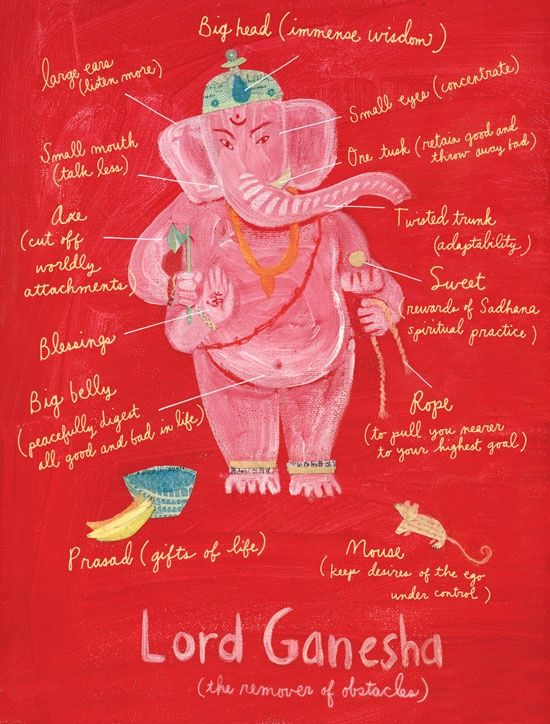 Big head (immense wisdom)
large ears
(listen more)
Small eyes (concentrate)
Small mouth
(talk less)
One tusk (retain good and
throw away bad)
Axe
(cut off
worldly
attachments)
Twisted trunk
(adaptability)
Sweet
(rewards of Sadhana
spiritual practice)
Blessings
ॐ
Big belly
(peacefully digest
all good and bad in life)
Rope
(to pull you nearer
to your highest goal)
Prasad (gifts of life)
Mouse
(keeps desires of the ego
under control)
Lord Ganesha
(the remover of obstacles)